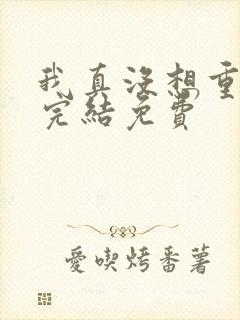 我真没想重
完結免費
愛喫烤番薯